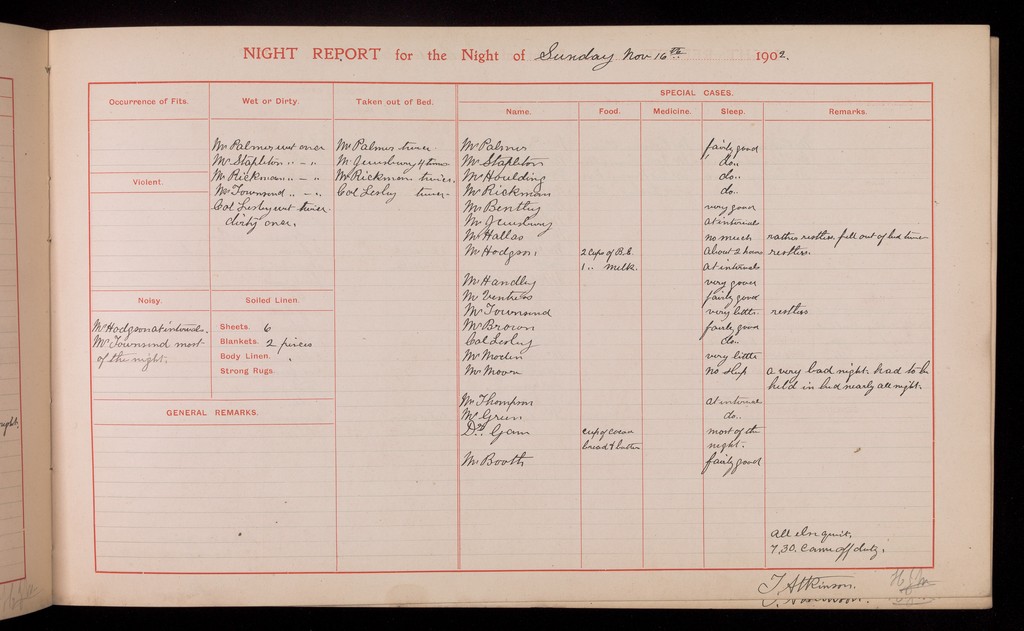 NIGHT REPORT for the Night of Sunday Nov 16th 1902.
Occurrence of Fits.
Violent.
Noisy.
Mr Hodgson at intervals.
Mr Townsend most
of the night.
Wet or Dirty.
Mr Palmer wet once
Mr Stapleton " - "
Mr Rickman " - "
Mr Townsend " - "
Col Lesley wet twice
dirty once.
Soiled Linen.
Sheets. 6
Blankets. 2 pieces
Body Linen. "
Strong Rugs.
GENERAL REMARKS.
Taken out of Bed.
Mr Palmer twice.
Mr Jewsbury 4 times
Mr Rickman twice.
Col Lesley twice.
SPECIAL CASES.
Name. Food. Medicine. Sleep. Remarks.
Mr Palmer fairly good
Mr Stapleton do..
Mr Houlding do..
Mr Rickman do..
Mr Bentley very good
Mr Jewsbury at intervals
Mr Hallas no much rather restless fell out of bed twice
Mr Hodgson 2 cups of B.E. about 2 hours restless.
1 " milk. at intervals
Mr Handley very good
Mr Ventress fairly good
Mr Townsend very little restless
Mr Brown fairly good
Col Lesley do..
Mr Moden very little
Mr Moore no sleep a very bad night. had to be
held in bed nearly all night.
Mr Thompson at interval
Mr Green do..
Dr Gam cup of cocoa most of the
bread & butter night.
Mr Booth fairly good
All else quiet.
7.30. Came off duty.
T. Atkinson.